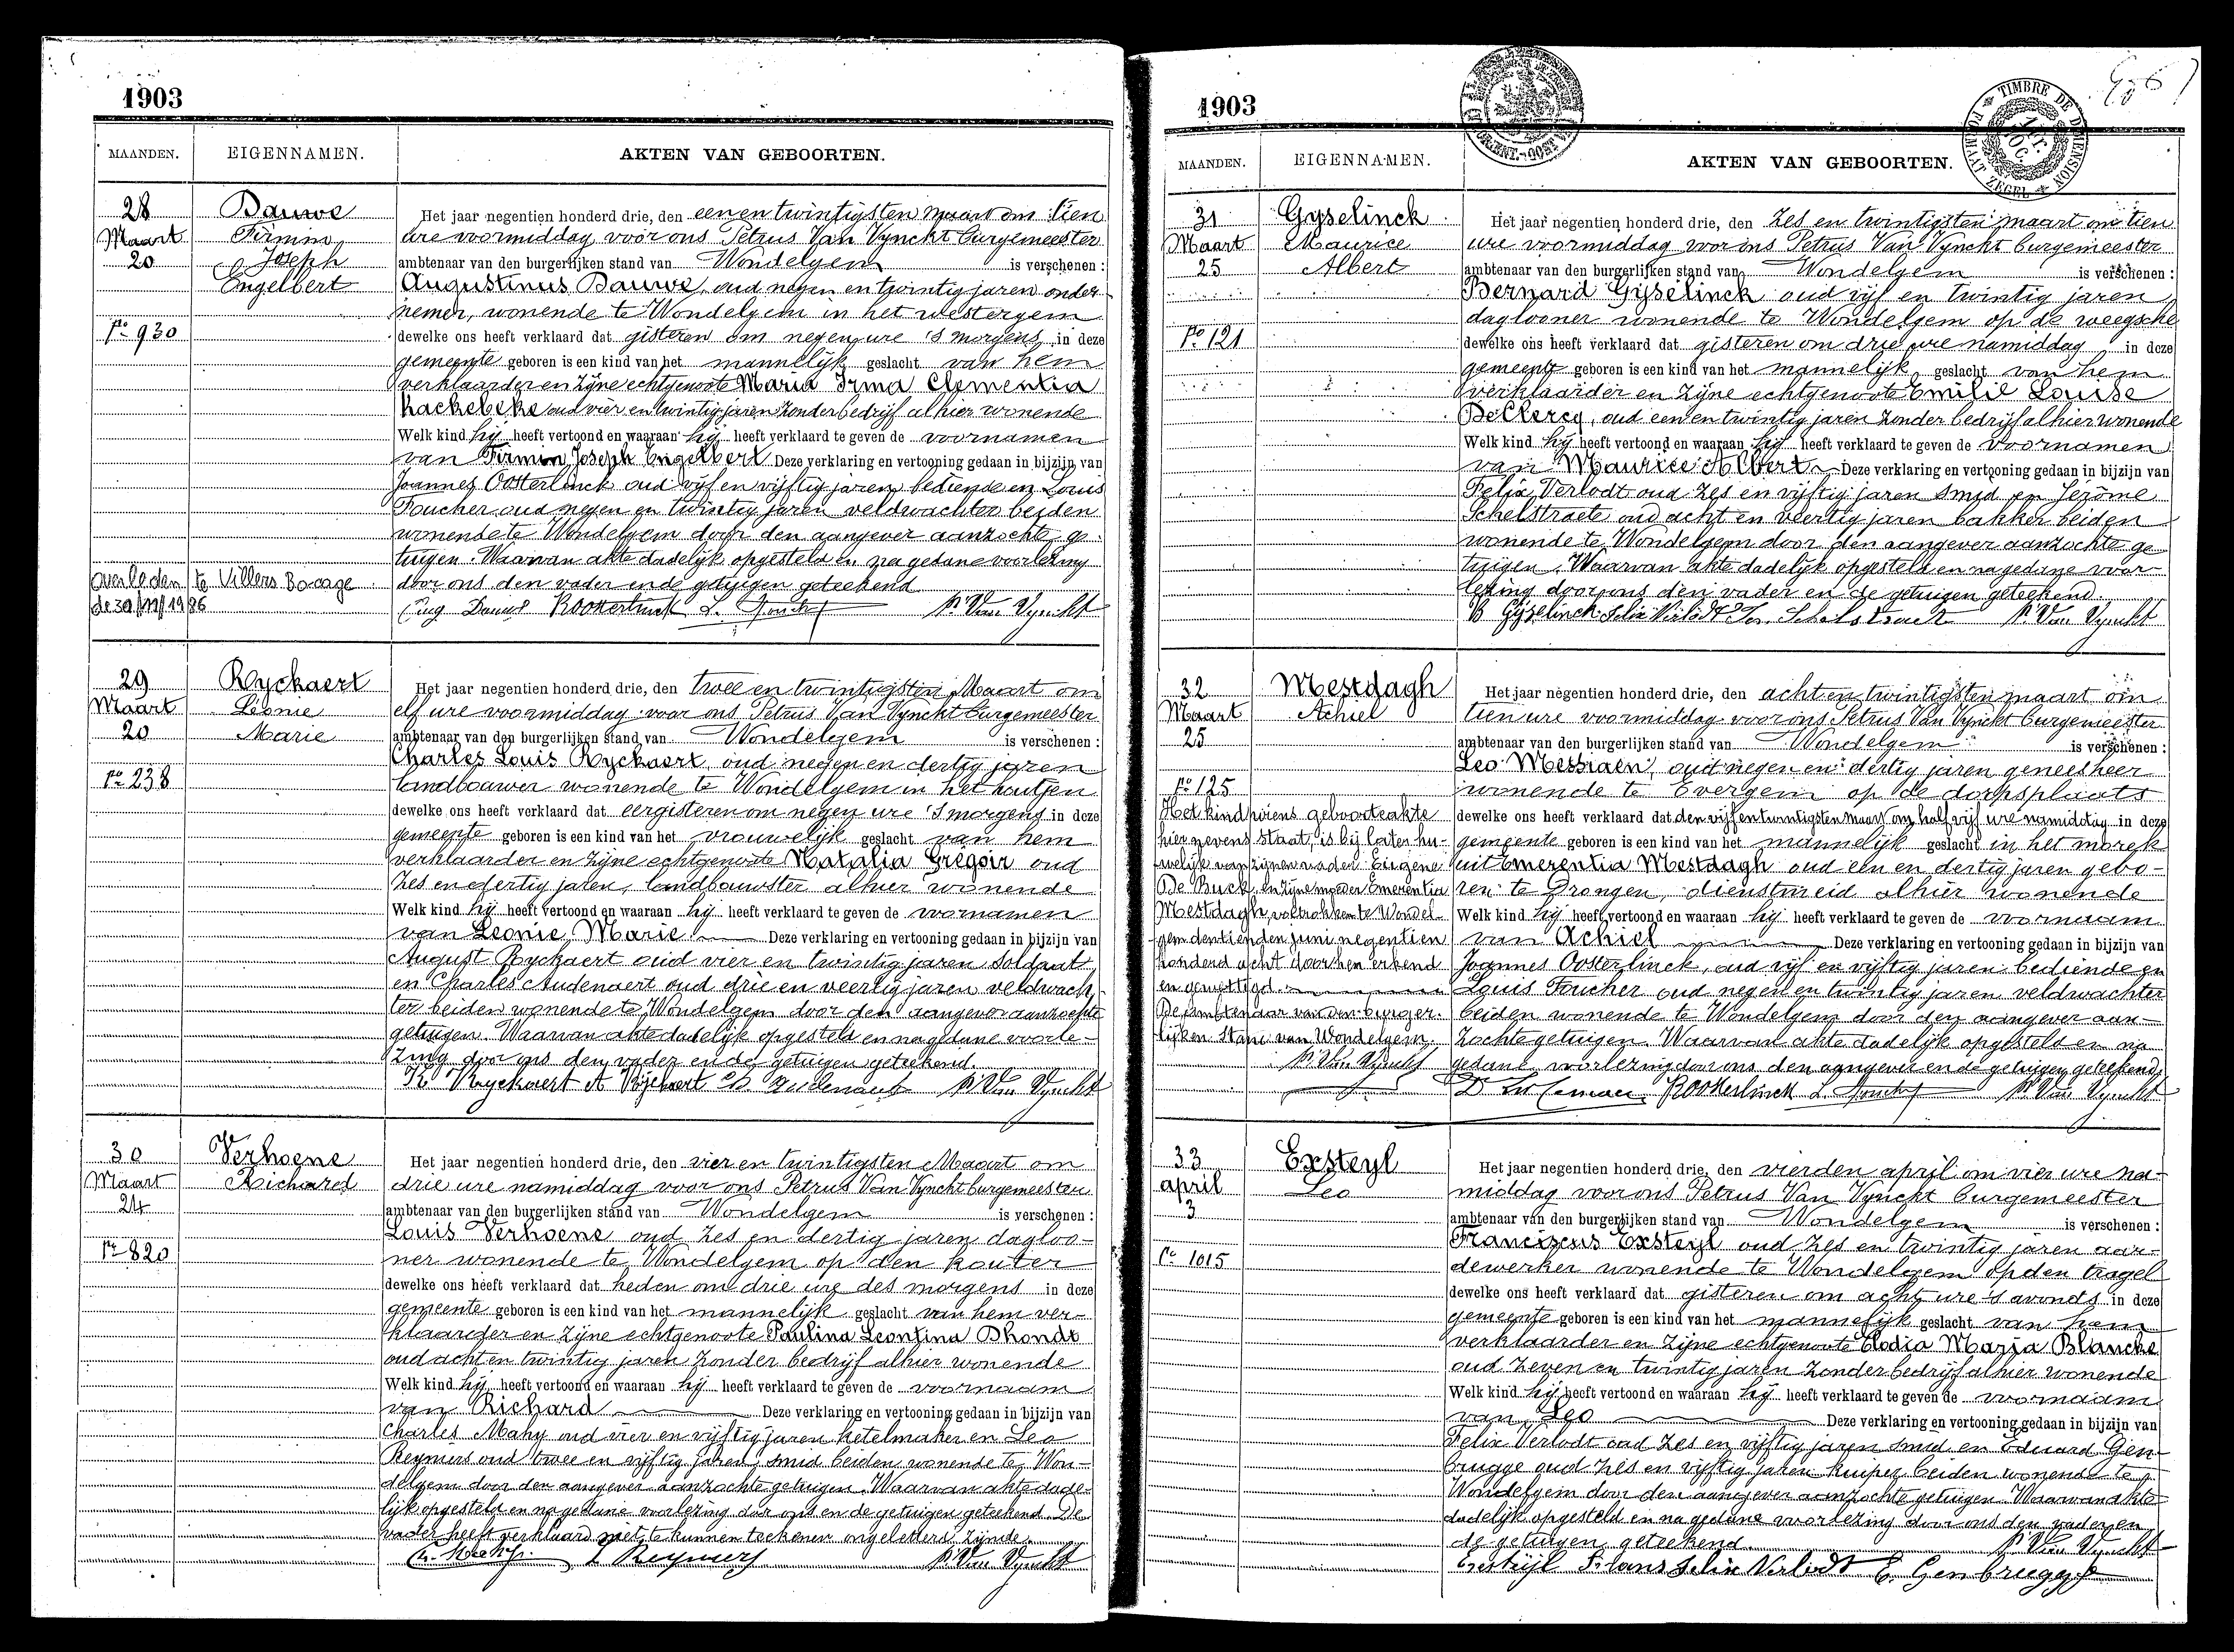 1903
MAANDEN. EIGENNAMEN. AKTEN VAN GEBOORTEN.
28 Maart 20
Bauwe Firmin Joseph Engelbert
No 930
Het jaar negentien honderd drie, den een en twintigsten Maart om tien
ure voormiddag voor ons Petrus Van Vynckt burgemeester
ambtenaar van den burgerlijken stand van Wondelgem is verschenen :
Augustinus Bauwe, oud negen en twintig jaren onder-
nemer, wonende te Wondelgem in het westergem
dewelke ons heeft verklaard dat gisteren om negen ure 's morgens in deze
gemeente geboren is een kind van het mannelijk geslacht van hem
verklaarder en zijne echtgenoote Maria Irma Clementia
Kackebeke oud vier en twintig jaren zonder bedrijf alhier wonende
Welk kind hij heeft vertoond en waaraan hij heeft verklaard te geven de voornamen
van Firmin Joseph Engelbert Deze verklaring en vertooning gedaan in bijzijn van
Joannes Oosterlinck oud vijf en vijftig jaren bediende en Louis
Foucher oud negen en twintig jaren veldwachter beiden
wonende te Wondelgem door den aangever aanzochte ge-
tuigen. Waarvan akte dadelijk opgesteld en na gedane voorlezing
door ons den vader en de getuigen geteekend
P. Van Vynckt
Overleden te Villers Bocage
29 Maart 20
Ryckaert Leonie Marie
No 238
Het jaar negentien honderd drie, den twee en twintigsten Maart om
elf ure voormiddag voor ons Petrus Van Vynckt burgemeester
ambtenaar van den burgerlijken stand van Wondelgem is verschenen :
Charles Louis Ryckaert, oud negen en dertig jaren
landbouwer wonende te Wondelgem in het houtjen
dewelke ons heeft verklaard dat eergisteren om negen ure 's morgens in deze
gemeente geboren is een kind van het vrouwelijk geslacht van hem
verklaarder en zijne echtgenoote Natalia Grégoir oud
zes en dertig jaren, landbouwster alhier wonende
Welk kind hij heeft vertoond en waaraan hij heeft verklaard te geven de voornamen
van Leonie Marie Deze verklaring en vertooning gedaan in bijzijn van
August Ryckaert oud vier en twintig jaren soldaat
en Charles Audenaert oud drie en veertig jaren veldwach-
ter beiden wonende te Wondelgem door den aangever aanzochte
getuigen. Waarvan akte dadelijk opgesteld en na gedane voorle-
zing door ons den vader en de getuigen geteekend.
Ryckaert A Ryckaert P. Van Vynckt
30 Maart 24
Verhoene Richard
No 820
Het jaar negentien honderd drie, den vier en twintigsten Maart om
drie ure namiddag voor ons Petrus Van Vynckt burgemeester
ambtenaar van den burgerlijken stand van Wondelgem is verschenen :
Louis Verhoene oud zes en dertig jaren dagloo-
ner wonende te Wondelgem op den kouter
dewelke ons heeft verklaard dat heden om drie ure des morgens in deze
gemeente geboren is een kind van het mannelijk geslacht van hem ver-
klaarder en zijne echtgenoote Paulina Leontina Dhondt
oud acht en twintig jaren zonder bedrijf alhier wonende
Welk kind hij heeft vertoond en waaraan hij heeft verklaard te geven de voornaam
van Richard Deze verklaring en vertooning gedaan in bijzijn van
Charles Mahy oud vier en vijftig jaren ketelmaker en Leo
Reymers oud twee en vijftig jaren, smid beiden wonende te Won-
delgem door den aangever aanzochte getuigen. Waarvan akte dade-
lijk opgesteld en na gedane voorlezing door ons en de getuigen geteekend. De
vader heeft verklaard niet te kunnen teekenen ongeletterd zijnde.
L Reymers P. Van Vynckt
1903
TIMBRE DE DIMENSION
FORMAAT ZEGEL
MAANDEN. EIGENNAMEN. AKTEN VAN GEBOORTEN.
31 Maart 25
Gyselinck Maurice Albert
No 121
Het jaar negentien honderd drie, den zes en twintigsten maart om tien
ure voormiddag voor ons Petrus Van Vynckt burgemeester
ambtenaar van den burgerlijken stand van Wondelgem is verschenen :
Bernard Gijselinck oud vijf en twintig jaren
daglooner wonende te Wondelgem op de weegsche
dewelke ons heeft verklaard dat gisteren om drie ure namiddag in deze
gemeente geboren is een kind van het mannelijk geslacht van hem
verklaarder en zijne echtgenoote Emilie Louise
De Clercq, oud een en twintig jaren zonder bedrijf alhier wonende
Welk kind hij heeft vertoond en waaraan hij heeft verklaard te geven de voornamen
van Maurice Albert Deze verklaring en vertooning gedaan in bijzijn van
Felix Verlodt oud zes en vijftig jaren smid en Jérôme
Schelstraete oud acht en veertig jaren bakker beiden
wonende te Wondelgem door den aangever aanzochte ge-
tuigen. Waarvan akte dadelijk opgesteld en na gedane voor-
lezing door ons den vader en de getuigen geteekend.
B Gijselinck Felix Verlodt P. Van Vynckt
32 Maart 25
Mestdagh Achiel
No 125
Het kind wiens geboorteakte
hiernevens staat, is bij later hu-
welijk van zijnen vader Eugene
De Buck, en zijne moeder Emerentia
Mestdagh, voltrokken te Wondel-
gem den tienden juni negentien
honderd acht door hen erkend
en gewettigd.
De ambtenaar van den burger-
lijken Stand van Wondelgem.
P. Van Vynckt
Het jaar negentien honderd drie, den acht en twintigsten maart om
tien ure voormiddag voor ons Petrus Van Vynckt burgemeester
ambtenaar van den burgerlijken stand van Wondelgem is verschenen :
Leo Messiaen, oud negen en dertig jaren geneesheer
wonende te Evergem op de dorpsplaats
dewelke ons heeft verklaard dat den vijf en twintigsten maart om half vijf ure namiddag in deze
gemeente geboren is een kind van het mannelijk geslacht in het marek
uit Emerentia Mestdagh oud een en dertig jaren gebo-
ren te Drongen, dienstmeid alhier wonende
Welk kind hij heeft vertoond en waaraan hij heeft verklaard te geven de voornaam
van Achiel Deze verklaring en vertooning gedaan in bijzijn van
Joannes Oosterlinck, oud vijf en vijftig jaren bediende en
Louis Foucher oud negen en twintig jaren veldwachter
beiden wonende te Wondelgem door den aangever aan-
zochte getuigen. Waarvan akte dadelijk opgesteld en na
gedane voorlezing door ons den aangever en de getuigen geteekend.
P. Van Vynckt
33 april 3
Exsteyl Leo
No 1015
Het jaar negentien honderd drie, den vierden april om vier ure na-
middag voor ons Petrus Van Vynckt burgemeester
ambtenaar van den burgerlijken stand van Wondelgem is verschenen :
Franciscus Exsteyl oud zes en twintig jaren aar-
dewerker wonende te Wondelgem op den tragel
dewelke ons heeft verklaard dat gisteren om acht ure 's avonds in deze
gemeente geboren is een kind van het mannelijk geslacht van hem
verklaarder en zijne echtgenoote Elodia Maria Blancke
oud zeven en twintig jaren zonder bedrijf alhier wonende
Welk kind hij heeft vertoond en waaraan hij heeft verklaard te geven de voornaam
van Leo Deze verklaring en vertooning gedaan in bijzijn van
Felix Verlodt oud zes en vijftig jaren smid en Eduard Gen-
brugge oud zes en vijftig jaren kuiper beiden wonende te
Wondelgem door den aangever aanzochte getuigen. Waarvan akte
dadelijk opgesteld en na gedane voorlezing door ons den vader en
de getuigen geteekend. P. Van Vynckt
Frans Felix Verlodt E. Genbrugge